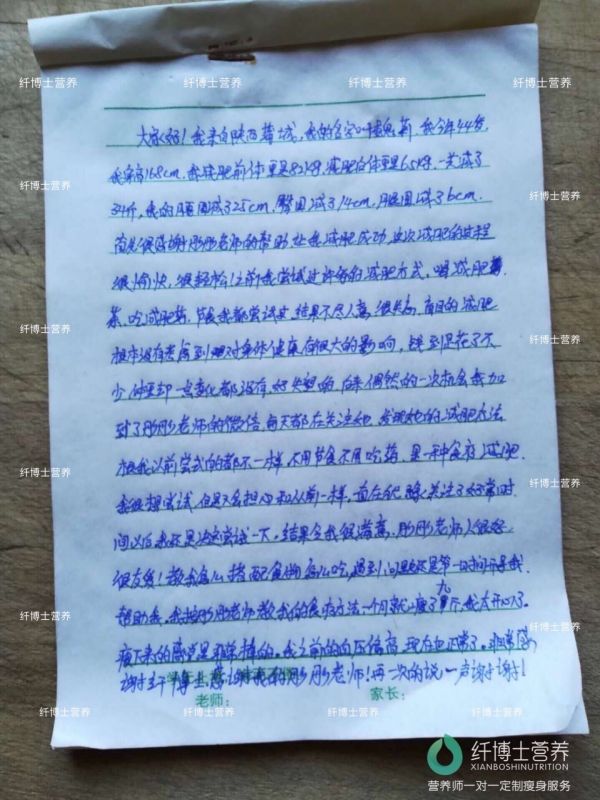 大家好！我来自陕西蒲城，我的名字叫 我今年44岁，
我身高168cm，我减肥前体重是82kg，减肥后体重是65kg，一共减了
34斤，我的腰围减了25cm，臀围减了14cm，腿围减了6cm．
首先很感谢彤彤老师的帮助让我减肥成功，这次减肥的过程
很愉快，很轻松！以前我尝试过许多的减肥方式，喝减肥
茶，吃减肥药，节食我都尝试过，结果不尽人意，很失
根本没有考虑到 对身体健康有很大的影响，钱到是花了不
少体重却一点变化都没有，好失望哟，后来偶然的一次机会我加
到了彤彤老师的微信，每天都在关注她，发现她的减肥方法
根我以前尝试的都不一样，不用节食不用吃药，是一种食疗减肥．
我很想尝试，但是又会担心和从前一样，一直在犹 关注了好常时
间以后我还是决定尝试一下。结果令我很满意，彤彤老师人很好
很友善！教我怎么搭配食物怎么吃，遇到问题总是第一时间指导我．
帮助我，我按彤彤老师教我的食疗方法一个月就瘦了九斤，我太开心了。
瘦下来的感觉是非常棒的。我之前的血压偏高，现在也正常了。非常感
谢纤博士，感谢我的彤彤老师！再一次的说一声谢谢谢谢！
老师：
家长：
纤博士营养
纤博士营养
纤博士营养
纤博士营养
纤博士营养
纤博士营养
纤博士营养
纤博士营养
纤博士营养
纤博士营养
纤博士营养
纤博士营养
纤博士营养
XIANBOSHINUTRITION
营养师一对一定制瘦身服务